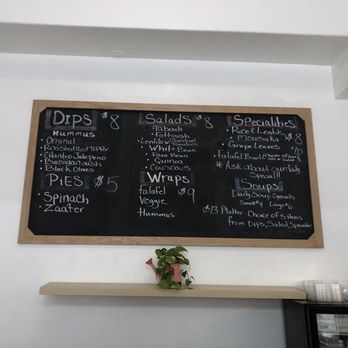 Dips $8
Hummus
Original
Roasted Red Pepper
Cilantro Jalapeno
Babaganoush
Black Olives
Pies $5
Spinach
Zaater
Salads $8
Tabouli
Fattoush
Lentils &
White Bean
Fava Bean
Quinoa
Couscous
Wraps $9
falafel
Veggie
Hummus
Specialties
Rice & Lentils
Mousaka $8
Grape Leaves
falafel Bowl $10
* Ask about our daily
Special!!
Soups
Daily Soup Specials
Small $4 Large $6
$13 Platter - Choice of 3 Items
from Dips, Salad, Specialties